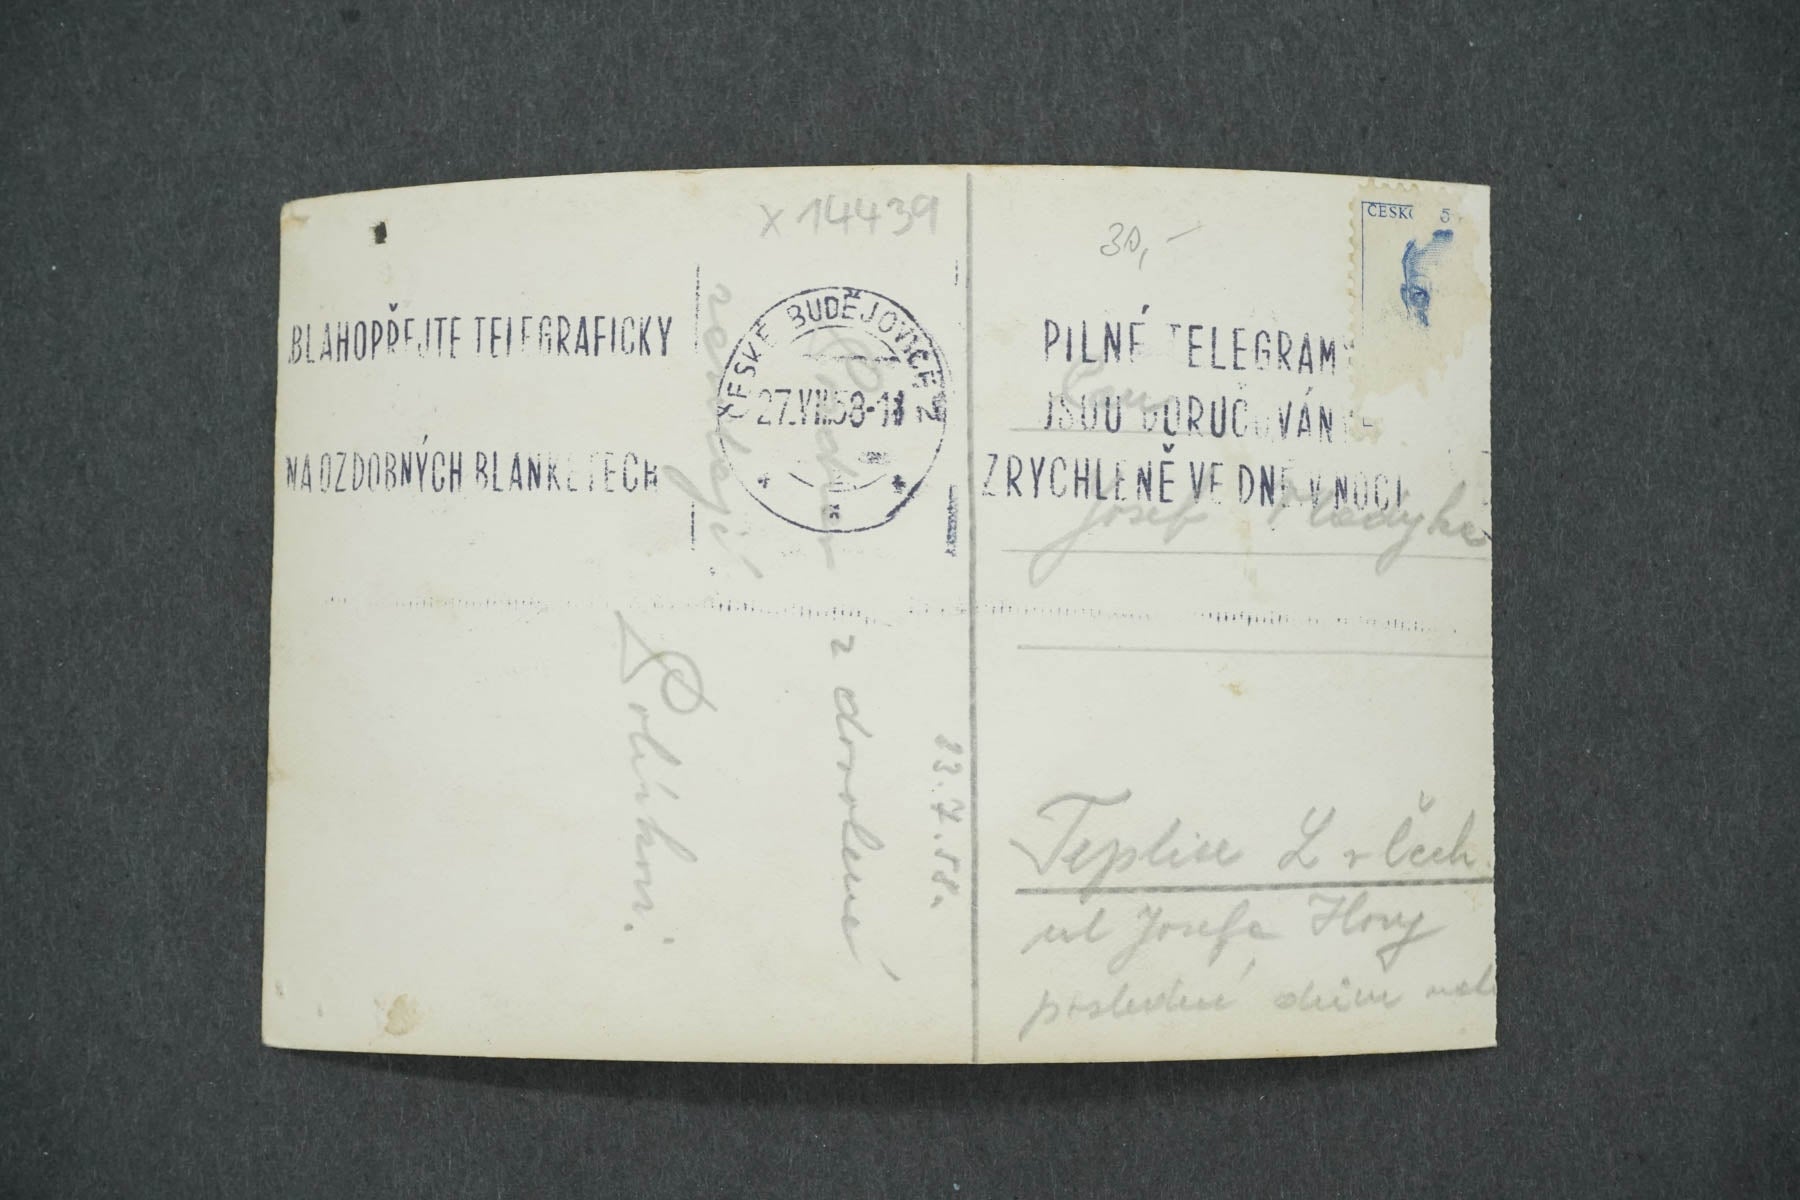 x 14439
BLAHOPŘEJTE TELEGRAFICKY
NA OZDOBNÝCH BLANKETECH
ČESKÉ BUDĚJOVICE 2
27.VII.58-18
23.7.58.
z dovolené
zasílají
Polívkovi
30,-
ČESKO
PILNÉ TELEGRAMY
JSOU DORUČOVÁNY
ZRYCHLENĚ VE DNE I V NOCI
Josef Vladyka
Teplice L v Čech.
ul Josefa Hory
poslední dům